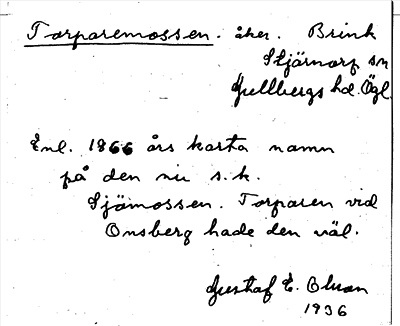 Torparemossen. åker. Brink
Stjärnorp sn
Gullbergs hd. Ögl.
Enl. 1866 års karta namn
på den nu s.k.
Sjömossen. Torparen vid
Onsberg hade den väl.
Gustaf E. Olson
1936